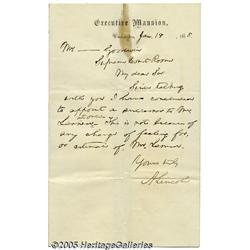 Executive Mansion,
Jan. 19, 1865.
Mr —— Goodwin
Supreme Court Room
My dear Sir
Since talking
with you I have concluded
to appoint a successor to Mr
This is not because of
any change of feeling for,
or estimate of Mr. Lamon.
Yours truly
A. Lincoln
©2005 HeritageGalleries